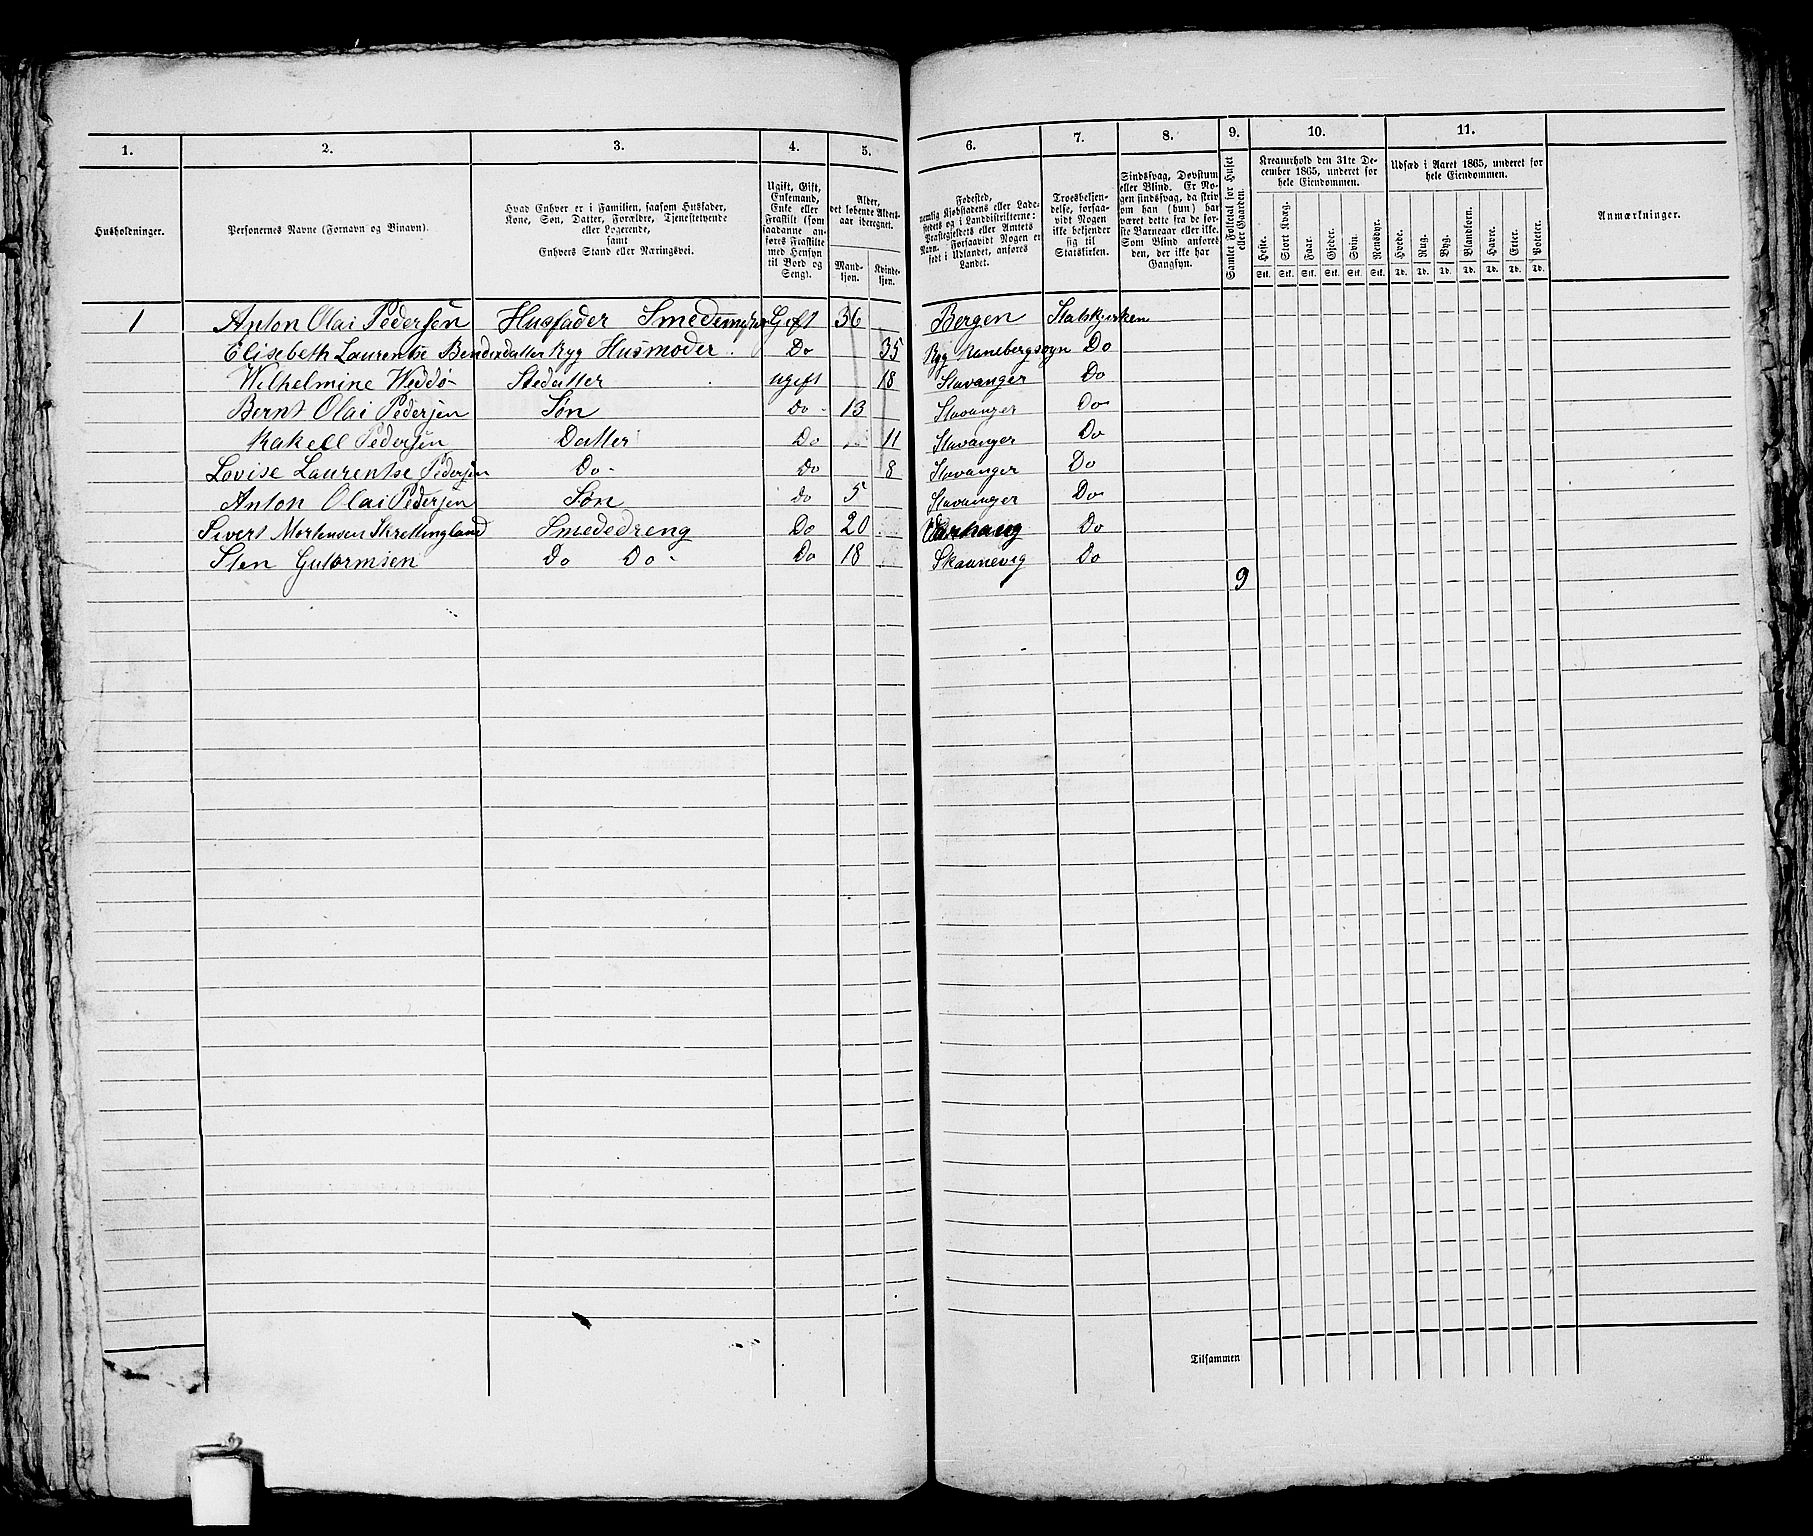 1. 2. 3. 4. 5. 6. 7. 8. 9. 10. 11.
Husholdninger.
Personernes Navne (Fornavn og Binavn).
Hvad Enhver er i Familien, saasom Husfader,
Kone, Søn, Datter, Forældre, Tjenestetyende
eller Logerende,
samt
Enhvers Stand eller Næringsvei.
Ugift, Gift,
Enkemand,
Enke eller
Fraskilt (som
saadanne an-
føres Fraskilte
med Hensyn
til Bord og
Seng).
Alder,
det løbende Alders-
aar iberegnet.
Mand-
kjøn.
Kvinde-
kjøn.
Fødested,
nemlig Kjøbstadens eller Lade-
stedets og i Landdistrikterne:
Præstegjeldets eller Amtets
Navn. Forsaavidt Nogen er
født i Udlandet, anføres
Landet.
Troesbekjen-
delse, forsaa-
vidt Nogen
ikke bekjender
sig til
Statskirken.
Sindssvag, Døvstum
eller Blind. Er No-
gen sindssvag, da skriv
om han (hun) har
været dette fra de før-
ste Barneaar eller ikke.
Som Blind anføres
den, der ikke har
Gangsyn.
Samlet Folketal for Huset
eller Gaarden.
Kreaturhold den 31te De-
cember 1865, underet for
hele Eiendommen.
Heste. Stort Kvæg. Faar. Gjeder. Svin. Rensdyr.
Stk. Stk. Stk. Stk. Stk. Stk.
Udsæd i Aaret 1865, underet for
hele Eiendommen.
Hvede. Rug. Byg. Blandkorn. Havre. Erter. Poteter.
Td. Td. Td. Td. Td. Td. Td.
Anmærkninger.
1 Anton Olai Pedersen Husfader Smedemester Gift 36 Bergen Statskirken
Elisebeth Laurentse Bendixdatter Ryg Husmoder. Do 35 Ryg Do
Wilhelmine Weddø Stedatter ugift 18 Stavanger Do
Bernt Olai Pedersen Søn Do 13 Stavanger Do
Rakell Pedersen Datter Do 11 Stavanger Do
Lovise Laurentse Pedersen Do Do 8 Stavanger Do
Anton Olai Pedersen Søn Do 5 Stavanger Do
Sivert Mortensen Skretlingland Smededreng Do 20 Do
Sten Gutormsen Do Do Do 18 Skaanevig Do
9
Tilsammen